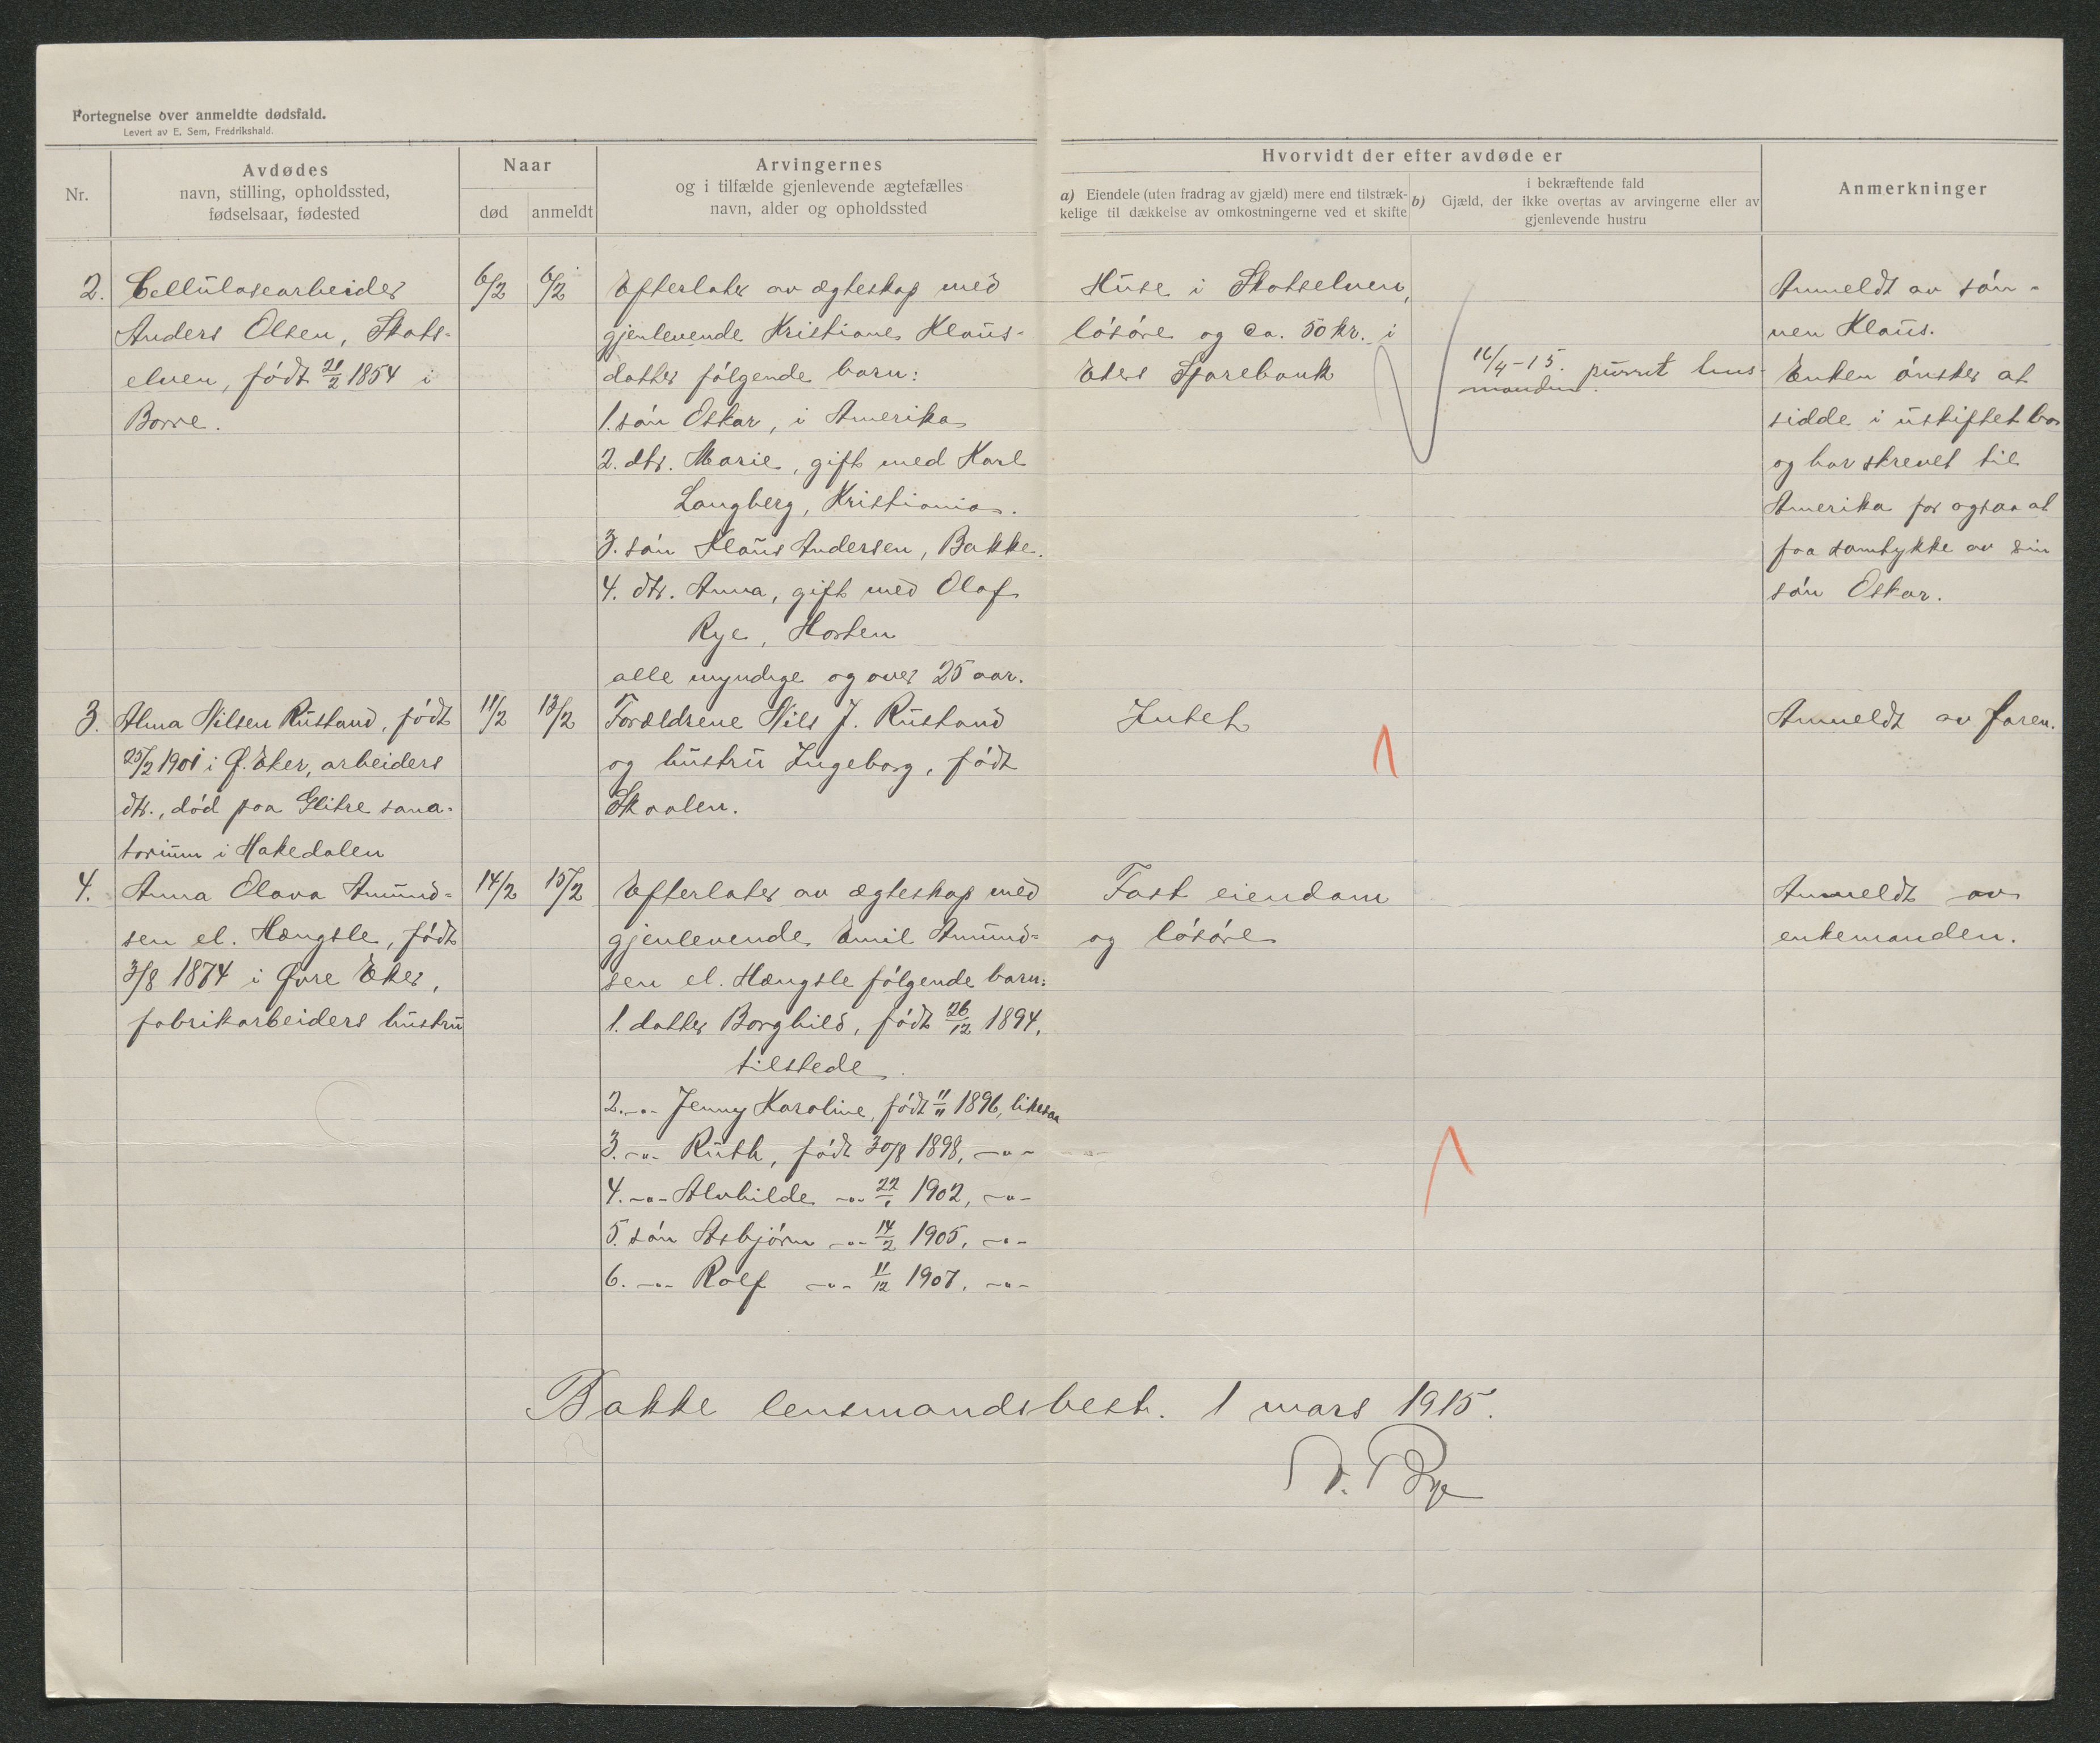 Fortegnelse over anmeldte dødsfald.
Levert av E. Sem, Fredrikshald.
Nr.
Avdødes
navn, stilling, opholdssted,
fødselsaar, fødested
Naar
død
anmeldt
Arvingernes
og i tilfælde gjenlevende ægtefælles
navn, alder og opholdssted
Hvorvidt der efter avdøde er
a) Eiendele (uten fradrag av gjæld) mere end tilstræk-
kelige til dækkelse av omkostningerne ved et skifte
i bekræftende fald
b) Gjæld, der ikke overtas av arvingerne eller av
gjenlevende hustru
Anmerkninger
2.
Cellulosearbeider
Anders Olsen, Skots-
elven, født 21/2 1854 i
Borre.
6/2
6/2
Efterlater av ægteskap med
gjenlevende Kristiane Klaus-
datter følgende barn:
1. søn Oskar, i Amerika
2. dtr. Marie, gift med Karl
Langberg, Kristiania.
3. søn Klaus Andersen, Bakke.
4. dtr. Anna, gift med Olaf
Rye, Horten
alle myndige og over 25 aar.
Huse i Skotselven,
løsøre og ca. 50 kr. i
Ekers Sparebank
16/4-15. purret lens-
manden.
Anmeldt av søn-
nen Klaus.
Enken ønsker at
sidde i uskiftet bo
og har skrevet til
Amerika for ogsaa at
faa samtykke av sin
søn Oskar.
3.
Alma Nilsen Rustand, født
25/2 1901 i Ø. Eker, arbeiders
dtr., død paa Glitre sana-
torium i Hakedalen
11/2
13/2
Forældrene Nils J. Rustand
og hustru Ingeborg, født
Skaalen.
Intet
Anmeldt av faren.
4.
Anna Olava Amund-
sen el. Hængsle, født
3/8 1874 i Øvre Eker,
fabrikarbeiders hustru
14/2
15/2
Efterlater av ægteskap med
gjenlevende Emil Amund-
sen el. Hængsle følgende barn:
1. datter Borghild, født 26/12 1894,
tilstede.
2. -"- Jenny Karoline, født 11/11 1896, likesaa
3. -"- Ruth, født 30/8 1898, -"-
4. -"- Alvhilde -"- 22/1 1902, -"-
5. søn Asbjørn -"- 14/2 1905, -"-
6. -"- Rolf -"- 11/12 1907, -"-
Fast eiendom
og løsøre
Anmeldt av
enkemanden.
Bakke lensmandsbest. 1 mars 1915.